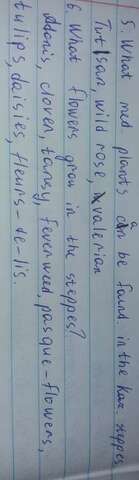 5. What med plants can be found in the Kaz. steppes
Tutsan, wild rose, valerian
6. What flowers grow in the steppes?
Adonis, clover, tansy, feverweed, pasque-flowers,
tulips, daisies, fleurs-de-lis.